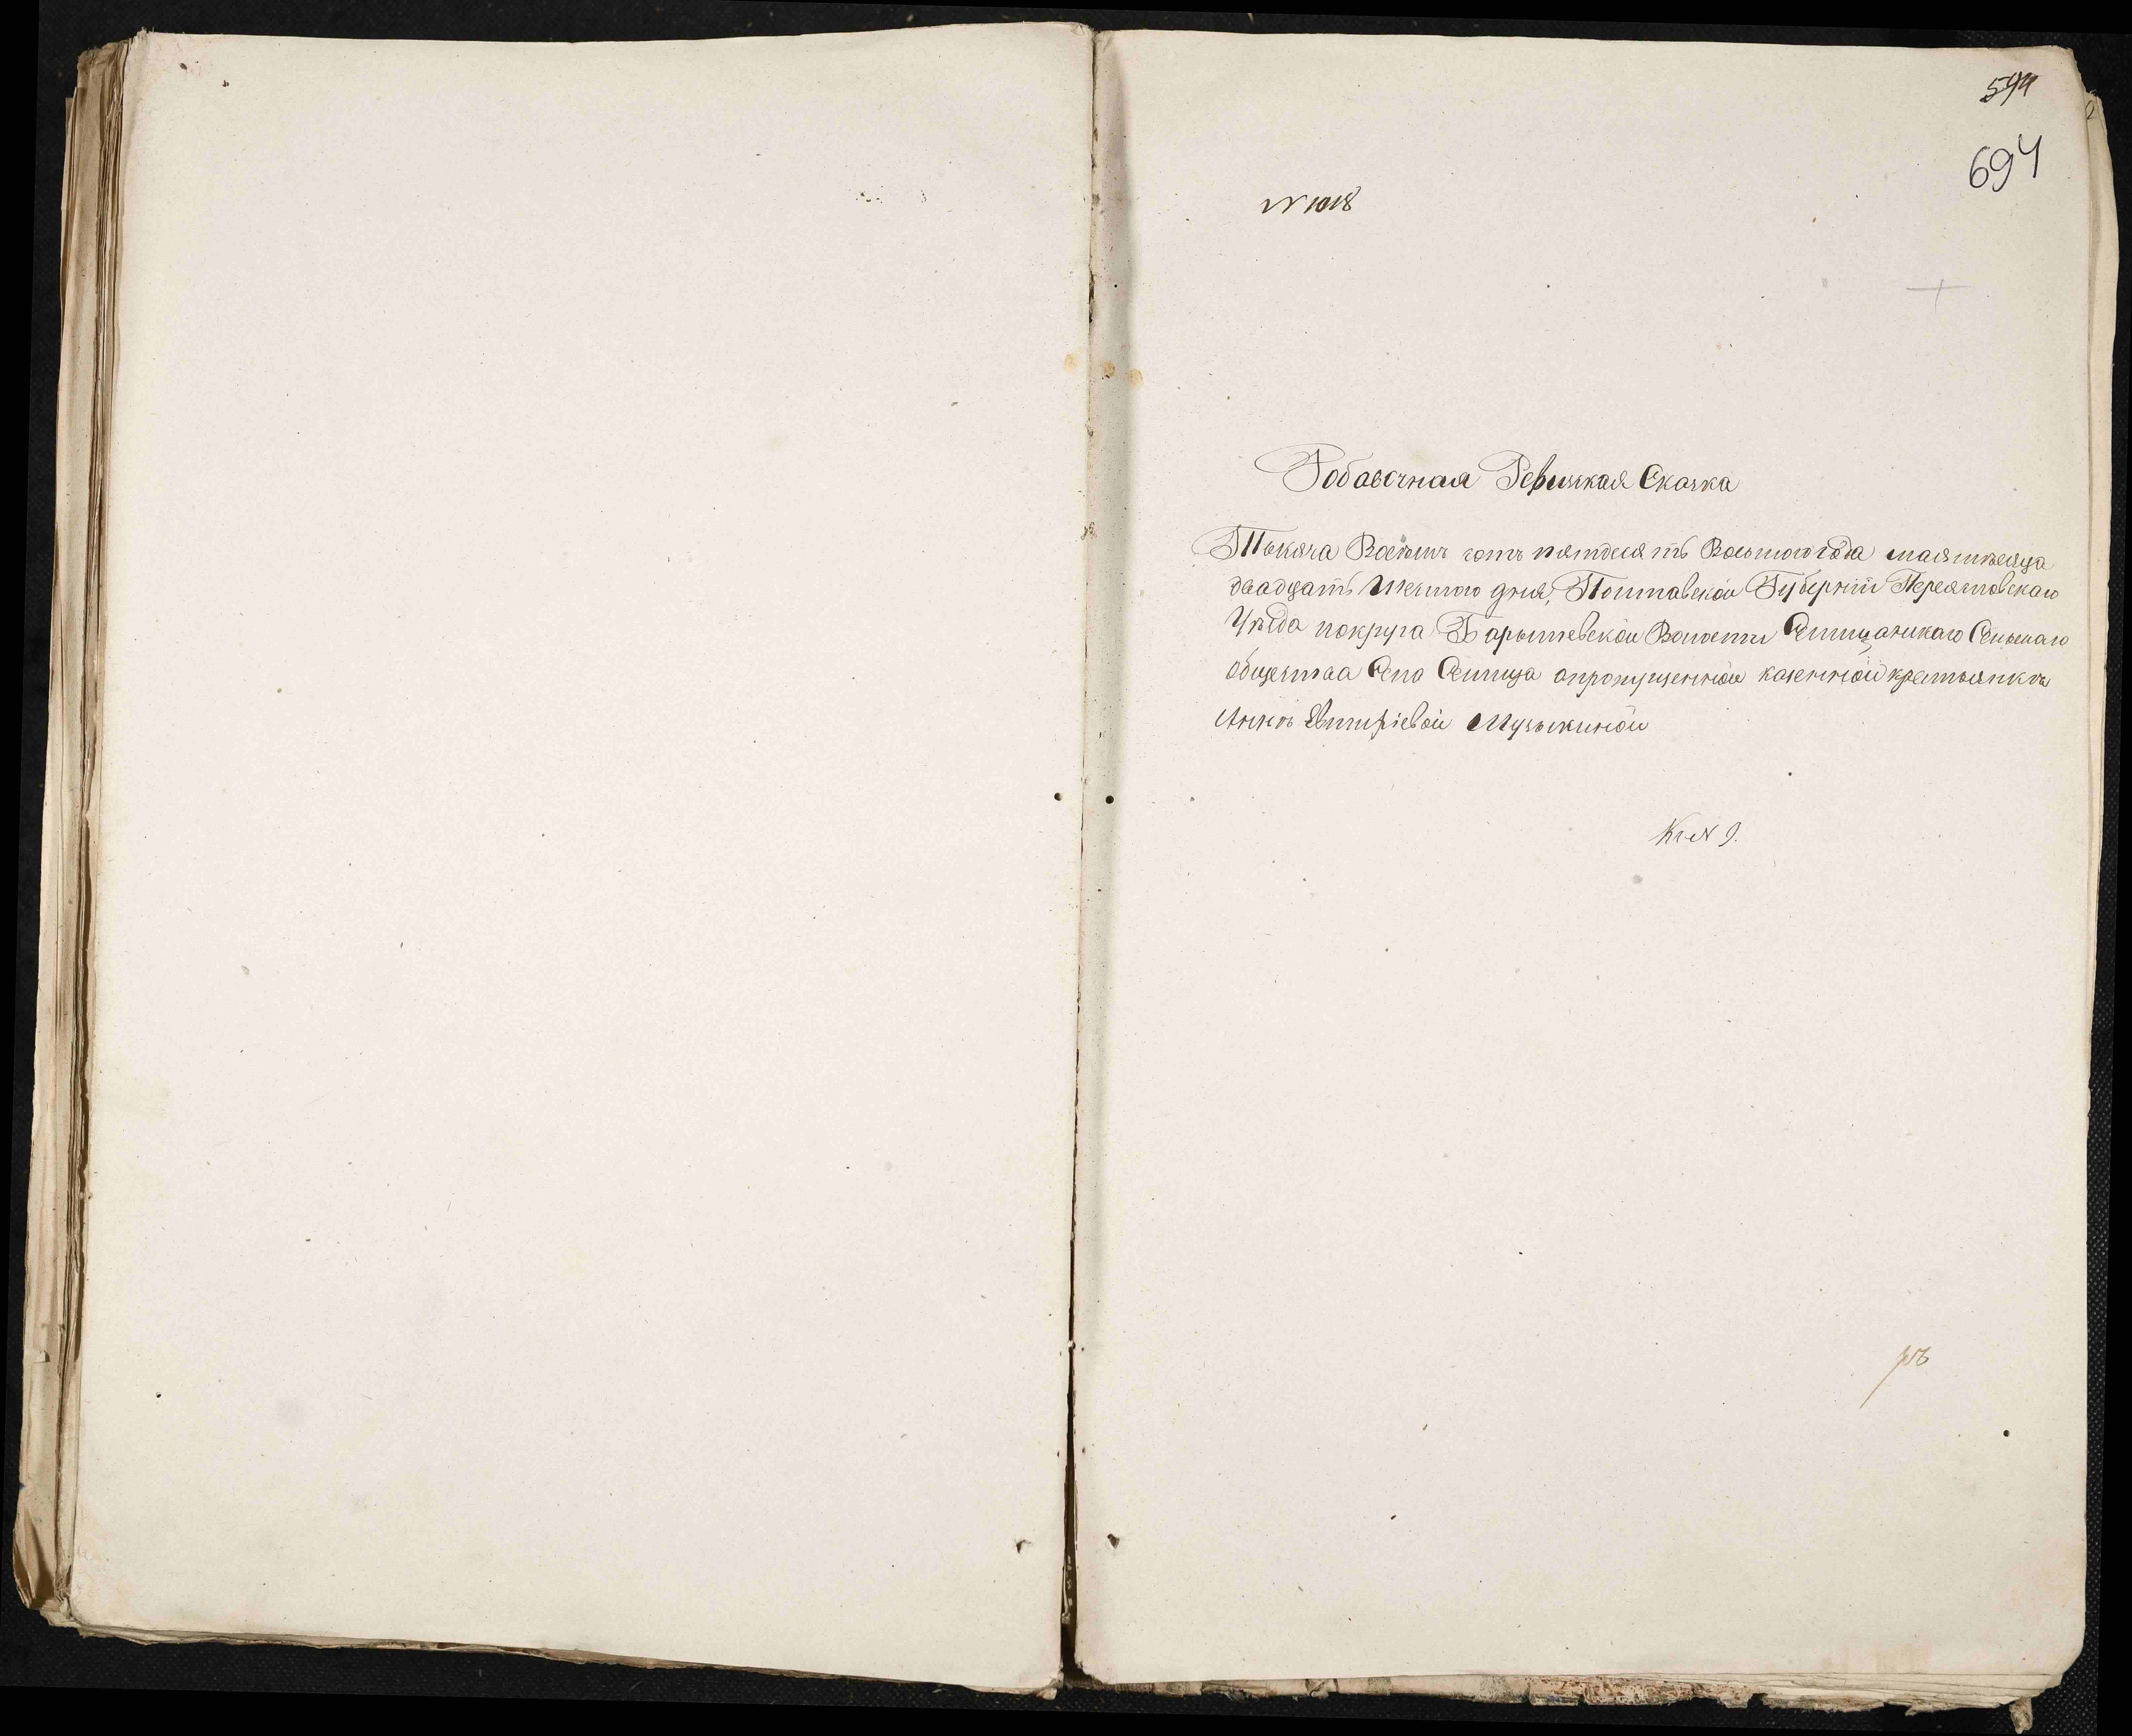 594
694
№ 1018
Добавочная Ревизкая Сказка
Тысяча Восемъ сотъ пятдесятъ Восьмого года мая месяца
двадцать шестого дня, Полтавской Губерніи Переяславскаго
Уѣзда и округа Барышевской Волости Селищанскаго Сельскаго
общества Села Селища опропущенной казенной крестьянкѣ
Аннѣ Евтифіевой Музыкиной
К № 9.